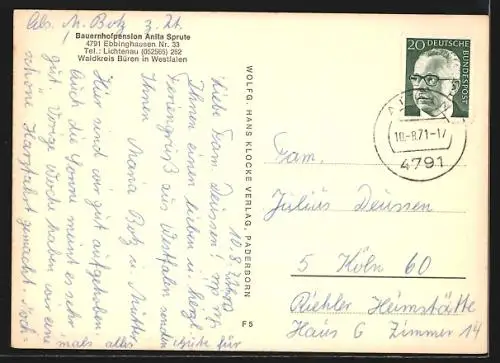 Abs. M. Botz z. Zt.
Bauernhofpension Anita Sprute
4791 Ebbinghausen Nr. 33
Tel.: Lichtenau (052565) 262
Waldkreis Büren in Westfalen
10.8.
Liebe Fam. Deussen!
Ihnen einen lieben u. herzl.
Feriengruß aus Westfalen senden
Ihnen Maria Botz u. Mutter
Hier sind wir gut aufgehoben.
Auch die Sonne meint es sehr
gut. Vorige Woche haben wir eine
schöne Harzfahrt gemacht. Noch-
mals alles Gute für
WOLFG. HANS KLOCKE VERLAG, PADERBORN
F 5
20 DEUTSCHE BUNDESPOST
10.-8.71-17
4791
Fam.
Julius Deussen
5 Köln 60
Riehler Heimstätte
Haus G Zimmer 14